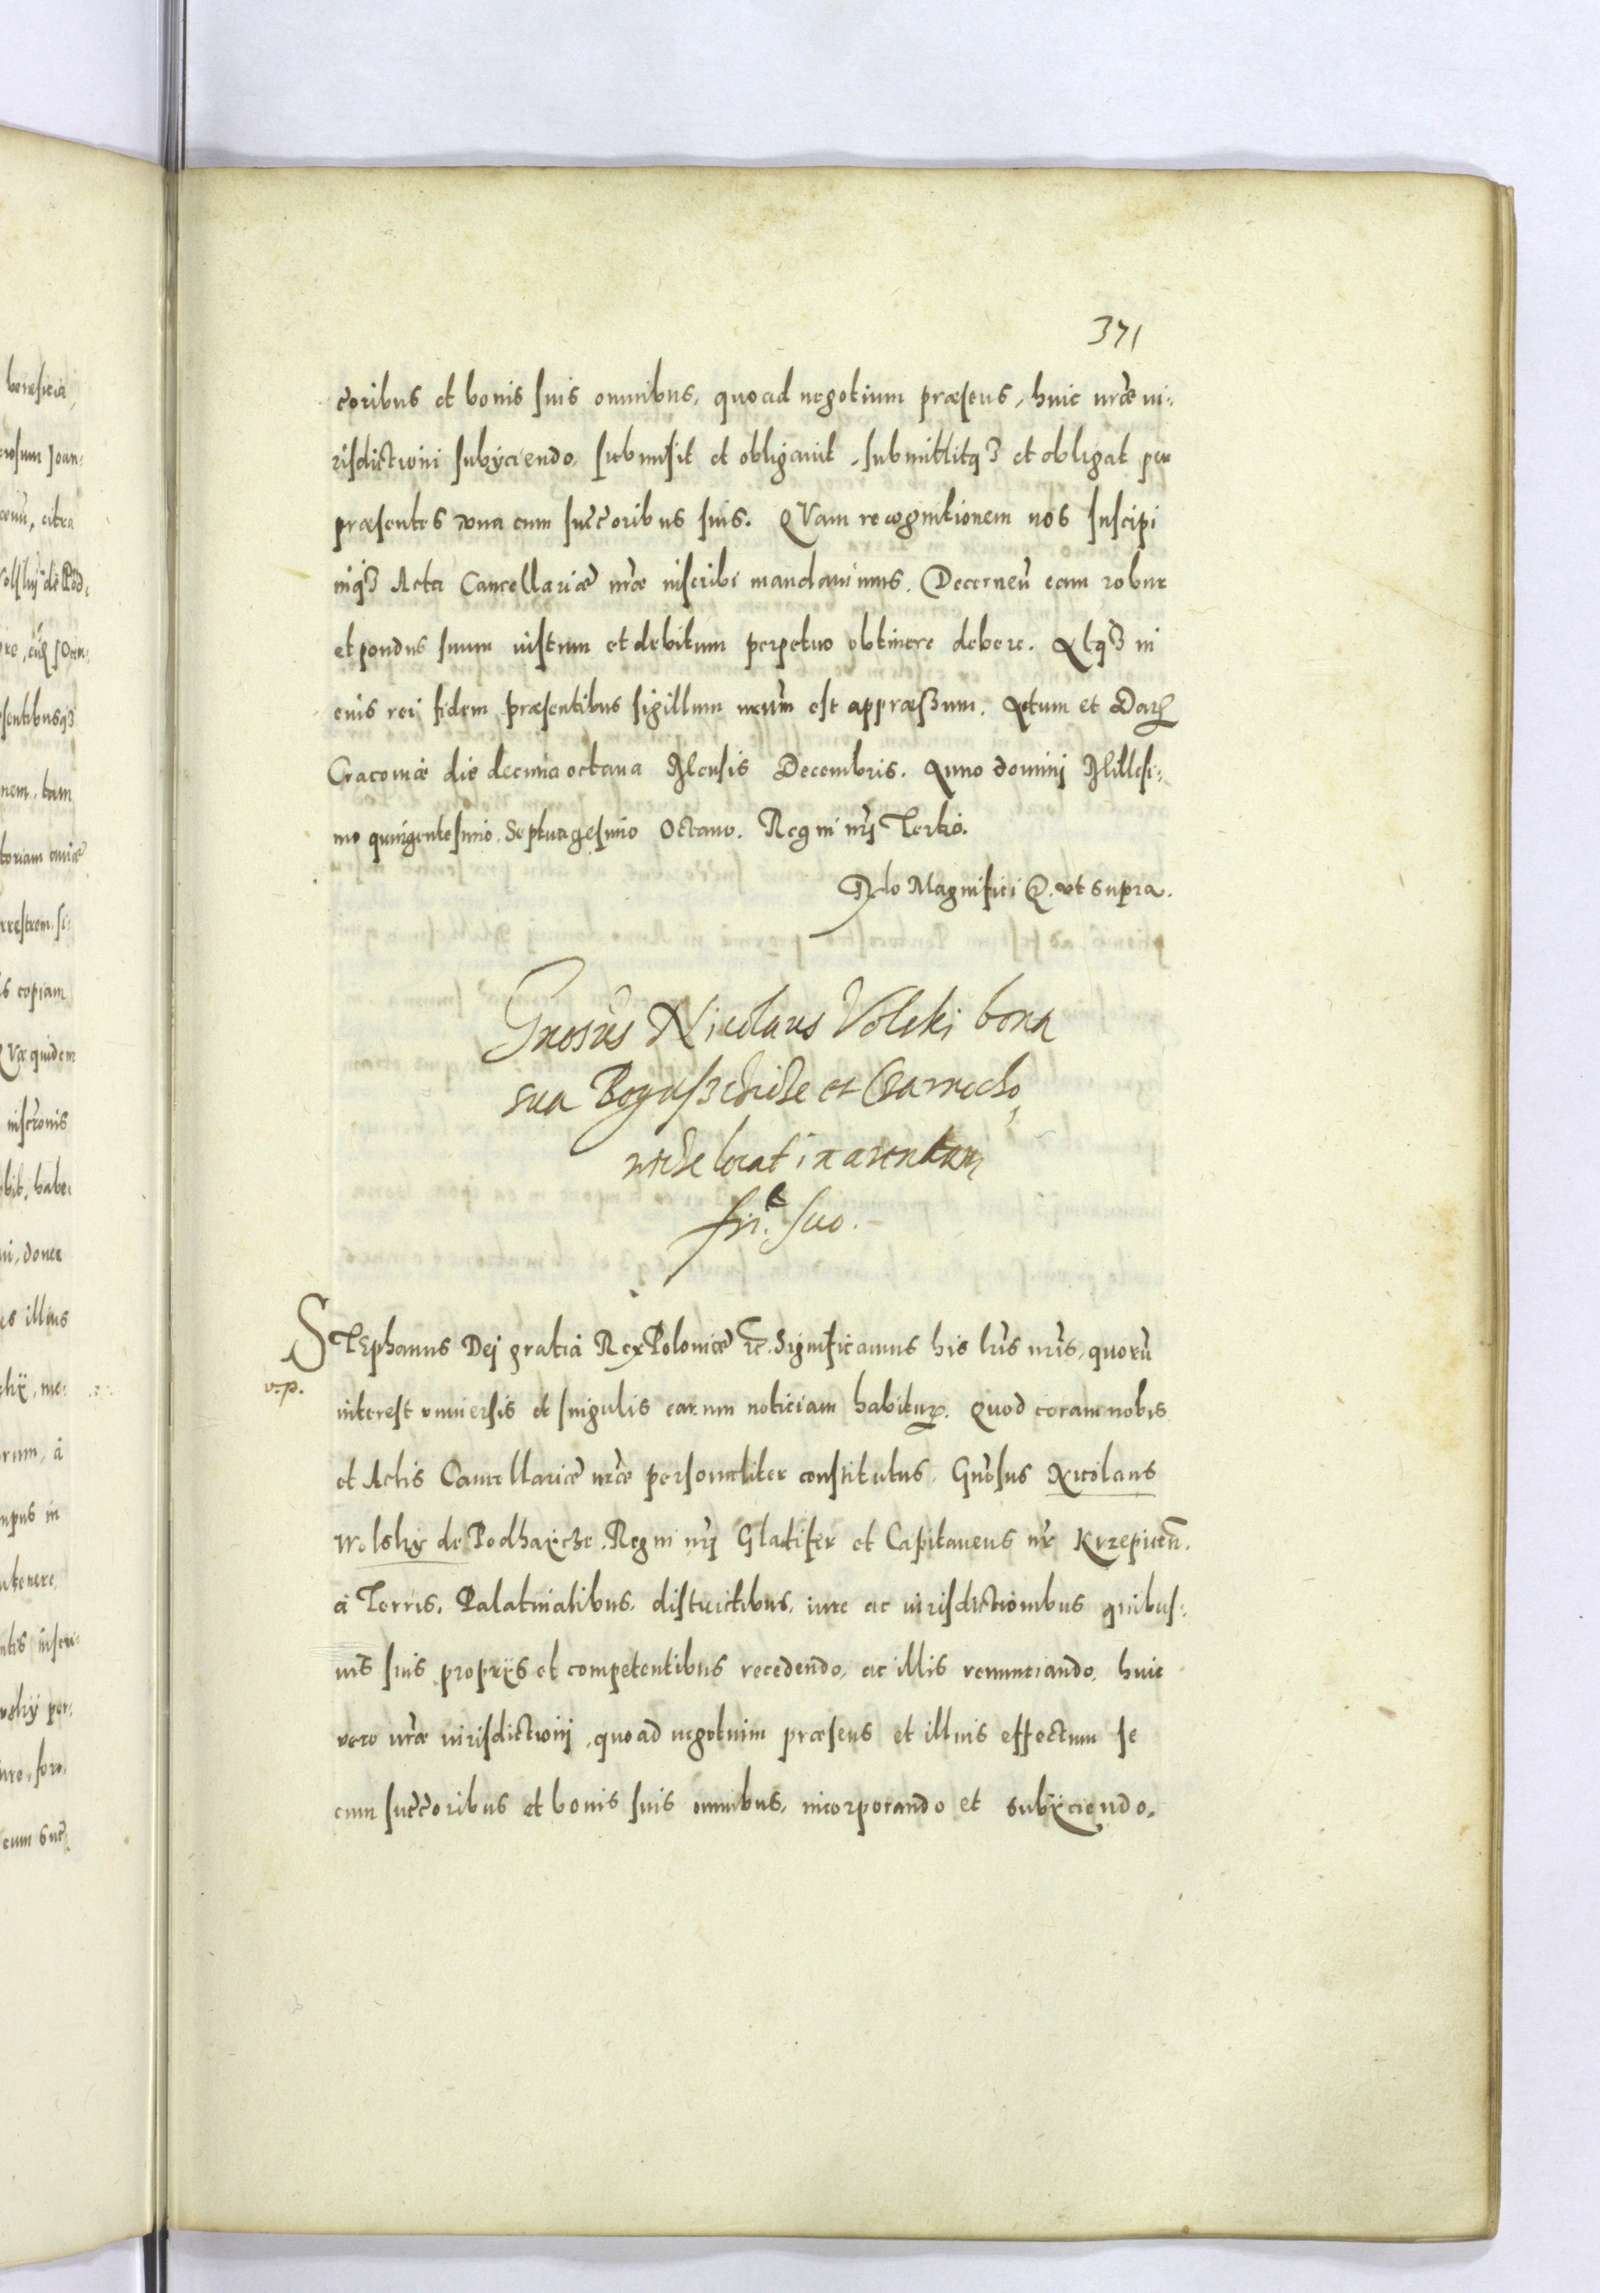 371
c̃oribus et bonis suis omnibus, quoad negotium præsens, huic nr̃æ iu:
risdictioni subÿciendo, submisit et obligauit, submittitqȝ et obligat per
præsentes vna cum succ̃oribus suis. QVam recognitionem nos suscipi
inqȝ Acta Cancellariæ nr̃æ inscribi mandauimus. Decerneñ eam robur
et pondus suum iustum et debitum perpetuo obtinere debere. Atqȝ in
cuius rei fidem præsentibus sigillum nrũm est appræssum. Actum et Datȝ
Cracouiæ die decima octaua Mensis Decembris. Anno dominj Millesi:
mo quingentesimo. Septuagesimo Octauo. Regni nr̃j Tertio.
Rlo Magnifici &. vt supra.
Gnosus Nicolaus Volski bona
sua
et
locat in arendam
fri suo.
STEphanus Dej gratia Rex Poloniæ ꝛc̃. Significamus his lr̃is nr̃is, quorũ
v.p.
interest vniuersis et singulis earum noticiam habiturȝ. Quod coram nobis
et Actis Cancellariæ nr̃æ personaliter constitutus, Gnõsus Nicolaus
Wolsky de Podhaÿcze. Regni nr̃j Gladifer et Capitaneus nr̃ Krzepiceñ.
à Terris, Palatinatibus, districtibus, iure ac iurisdictionibus quibus:
uis suis proprÿs et competentibus recedendo, ac illis renunciando, huic
vero nr̃æ iurisdictionj, quoad negotium præsens et illius effectum se
cum succ̃oribus et bonis suis omnibus, incorporando et subÿciendo,